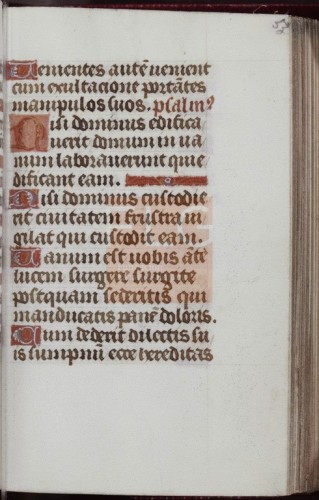 Uenientes autē uenient
cum exultacione portātes
manipulos suos. psalmꝰ
Nisi dominus edifica
uerit domum in ua
num laborauerunt qui e
dificant eam.
Nisi dominus custodie
rit ciuitatem frustra ui
gilat qui custodit eam.
Uanum est uobis ātē
lucem surgere surgite
postquam sederitis qui
manducatis panē doloris.
Cum dederit dilectis su
is sompnū ecce hereditas